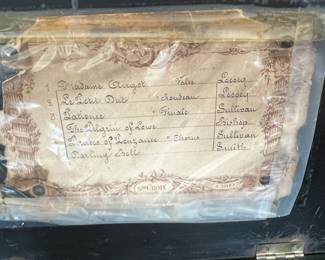 1 Madame Angot Valse Lecocq
2 Le Petit Duc Rondeau Lecocq
3 Patience Finale Sullivan
The Pilgrim of Love Bishop
Pirates of Penzance Chorus Sullivan
Darling Bell Smith
STE CROIX